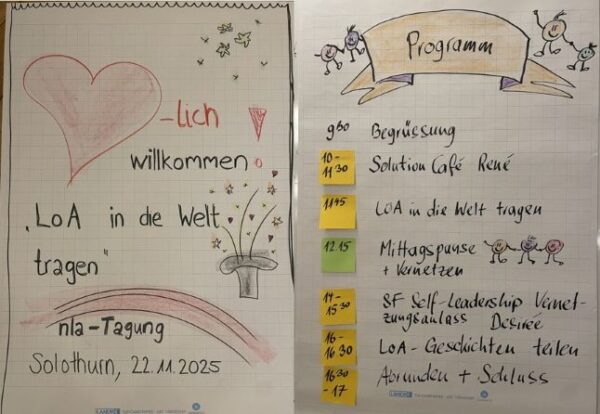 -lich
willkommen
"LoA in die Welt
tragen"
nla-Tagung
Solothurn, 22.11.2025
Programm
9⁰⁰ Begrüssung
10-11³⁰ Solution Café René
11⁴⁵ LoA in die Welt tragen
12.15 Mittagspause
+ Vernetzen
14-15³⁰ SF Self-Leadership Vernet-
zungsanlass Desirée
16-16³⁰ LoA-Geschichten teilen
16³⁰-17 Abrunden + Schluss